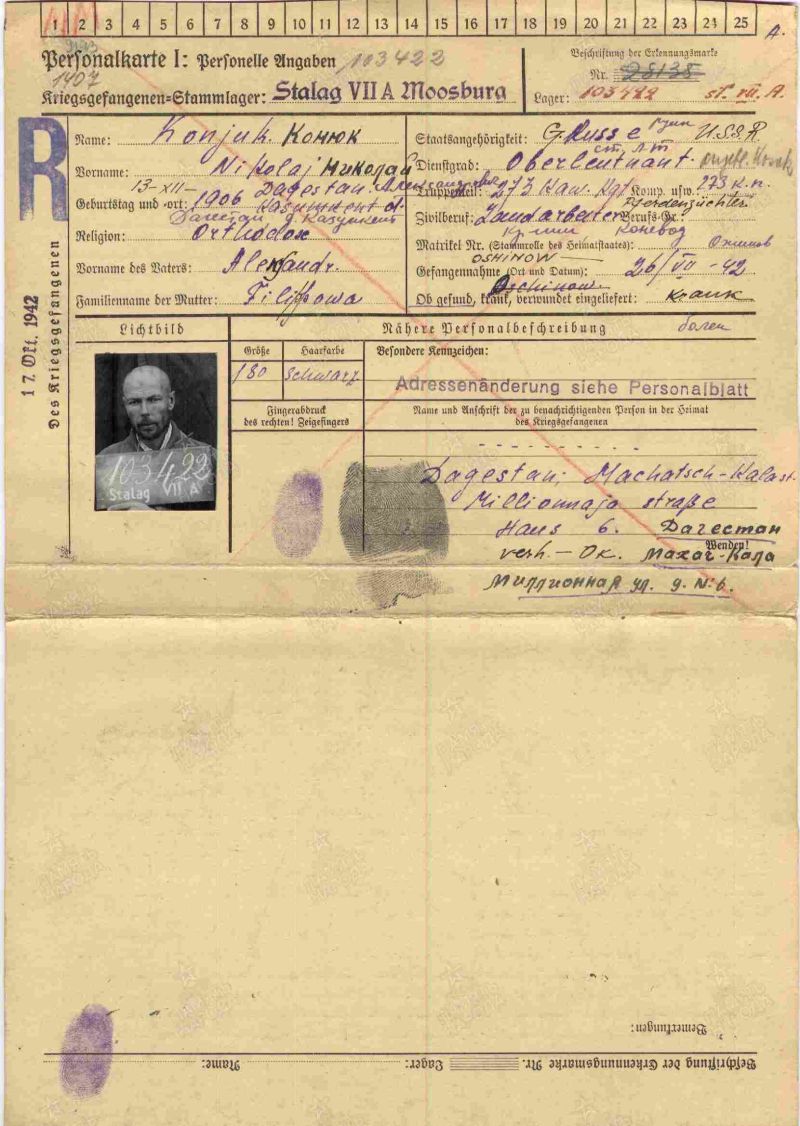 1 2 3 4 5 6 7 8 9 10 11 12 13 14 15 16 17 18 19 20 21 22 23 24 25
A.
Personalkarte I: Personelle Angaben 103422
1407
Kriegsgefangenen=Stammlager: Stalag VII A Moosburg
Beschriftung der Erkennungsmarke
Nr. 28138
Lager: 103422 St. VII A.
R
Des Kriegsgefangenen
17. Okt. 1942
Name: Konjuk Конюк
Vorname: Nikolaj Николай
Александр
Geburtstag und =ort: 13-XII- 1906 Dagestan
Дагестан д. Касумкент
Religion: Orthodox
Vorname des Vaters: Aleksandr.
Familienname der Mutter: Filippowa
Staatsangehörigkeit: Russe U.S.S.R
ст. лт
Dienstgrad: Oberleutnant.
Truppenteil: 273 Kaw. Rgt Komp. usw.: 273 к.п.
Pferdenzüchter
Zivilberuf: Landarbeiter Berufs-Gr.:
коневод
Matrikel Nr. (Stammrolle des Heimatstaates):
OSHINOW
Gefangennahme (Ort und Datum): 26/VII-42
Oschinow
Ob gesund, krank, verwundet eingeliefert: krank
болен
Lichtbild
103422
Stalag VII A
Nähere Personalbeschreibung
Größe
Haarfarbe
Besondere Kennzeichen:
180 schwarz
Adressenänderung siehe Personalblatt
Fingerabdruck
des rechten! Zeigefingers
Name und Anschrift der zu benachrichtigenden Person in der Heimat
des Kriegsgefangenen
Dagestan, Machatsch-Kala st.
Millionnaja straße
Haus 6. Дагестан
verh. - Ок. Махач-Кала
Wenden!
Миллионная ул. д. № 6.
Bemerkungen:
Beschriftung der Erkennungsmarke Nr. Lager: Name: